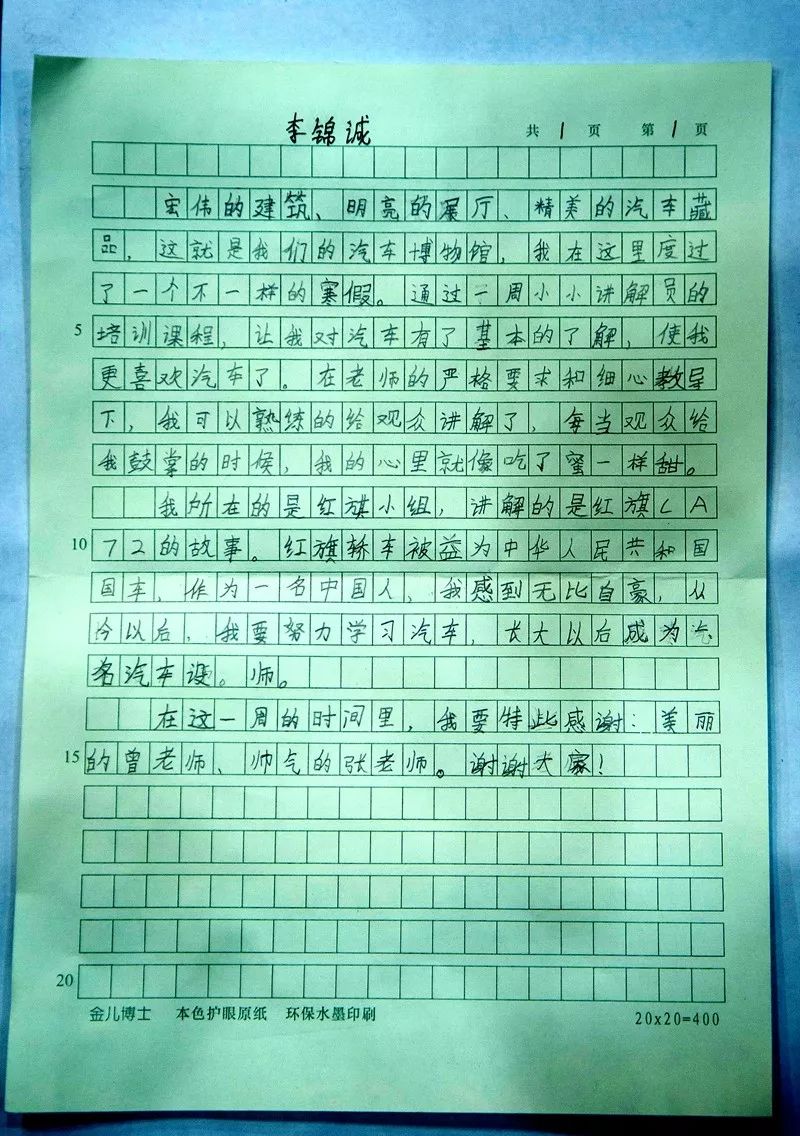 李锦诚 共1页 第1页
宏伟的建筑、明亮的展厅、精美的汽车藏
品，这就是我们的汽车博物馆，我在这里度过
了一个不一样的寒假。通过一周小小讲解员的
5 培训课程，让我对汽车有了基本的了解，使我
更喜欢汽车了。在老师的严格要求和细心教导
下，我可以熟练的给观众讲解了，每当观众给
我鼓掌的时候，我的心里就像吃了蜜一样甜。
我所在的是红旗小组，讲解的是红旗CA
10 72的故事。红旗轿车被益为中华人民共和国
国车，作为一名中国人，我感到无比自豪，从
今以后，我要努力学习汽车，长大以后成为
名汽车设。师。
在这一周的时间里，我要特此感谢：美丽
15 的曾老师、帅气的张老师。谢谢大家！
20
金儿博士 本色护眼原纸 环保水墨印刷 20x20=400